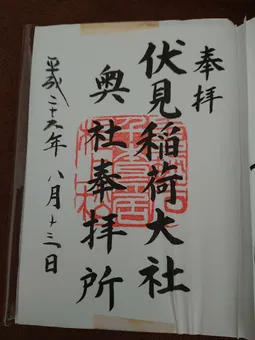 奉拝
伏見稲荷大社
奥社奉拝所
平成二十六年八月十三日